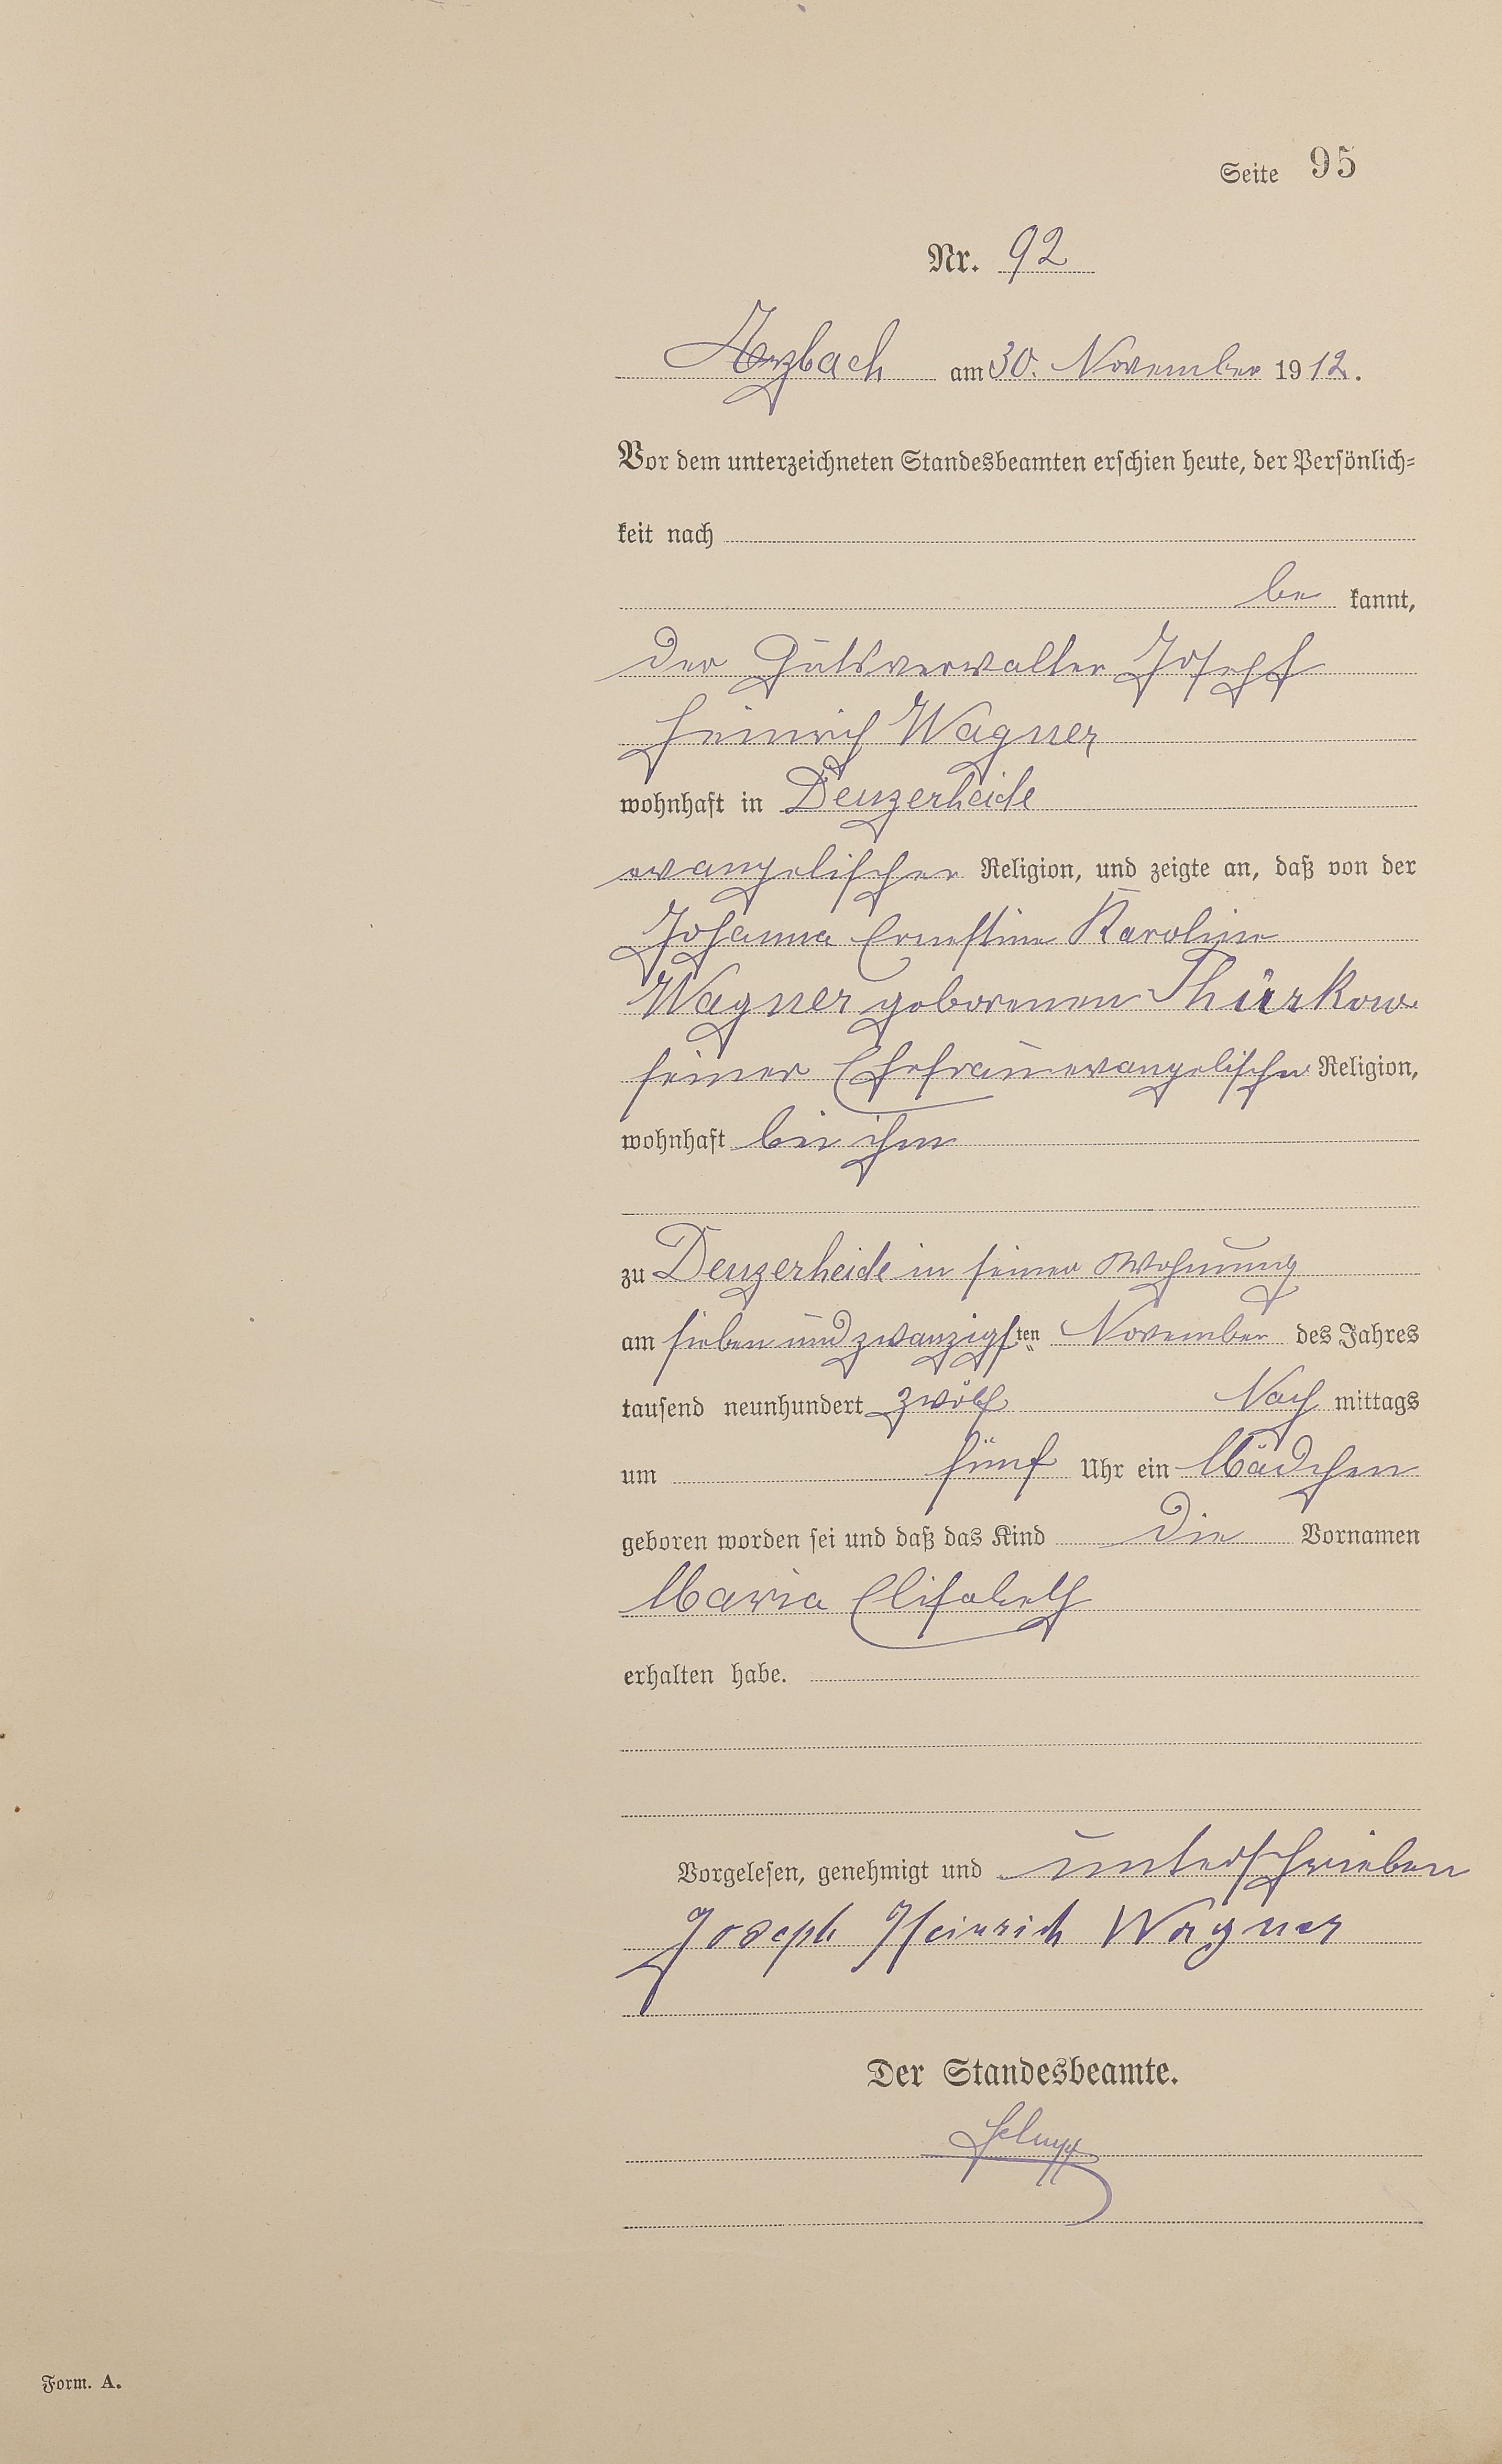 Seite 95
Nr. 92
Arzbach am 30. November 1912.
Vor dem unterzeichneten Standesbeamten erschien heute, der Persönlich-
keit nach
be kannt,
der Gutsverwalter Joseph
Heinrich Wagner
wohnhaft in Denzerheide
evangelischer Religion, und zeigte an, daß von der
Johanna Ernestine Karoline
Wagner geborenen Thürkow
seiner Ehefrau evangelischer Religion,
wohnhaft bei ihm
zu Denzerheide in seiner Wohnung
am sieben und zwanzigsten November des Jahres
tausend neunhundert zwölf Nach mittags
um fünf Uhr ein Mädchen
geboren worden sei und daß das Kind die Vornamen
Maria Elisabeth
erhalten habe.
Vorgelesen, genehmigt und unterschrieben
Joseph Heinrich Wagner
Der Standesbeamte.
Form. A.